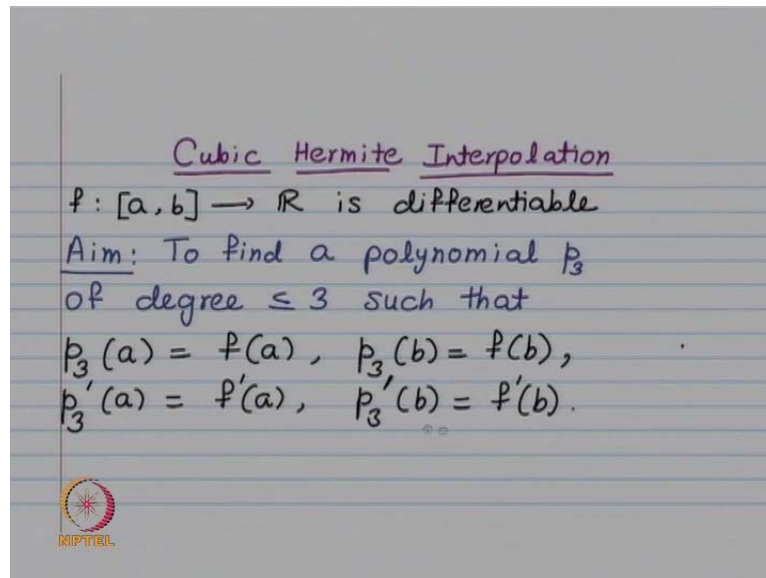 Cubic Hermite Interpolation
f : [a, b] → ℝ is differentiable
Aim: To find a polynomial p₃
of degree ≤ 3 such that
p₃(a) = f(a), p₃(b) = f(b),
p₃'(a) = f'(a), p₃'(b) = f'(b).
NPTEL